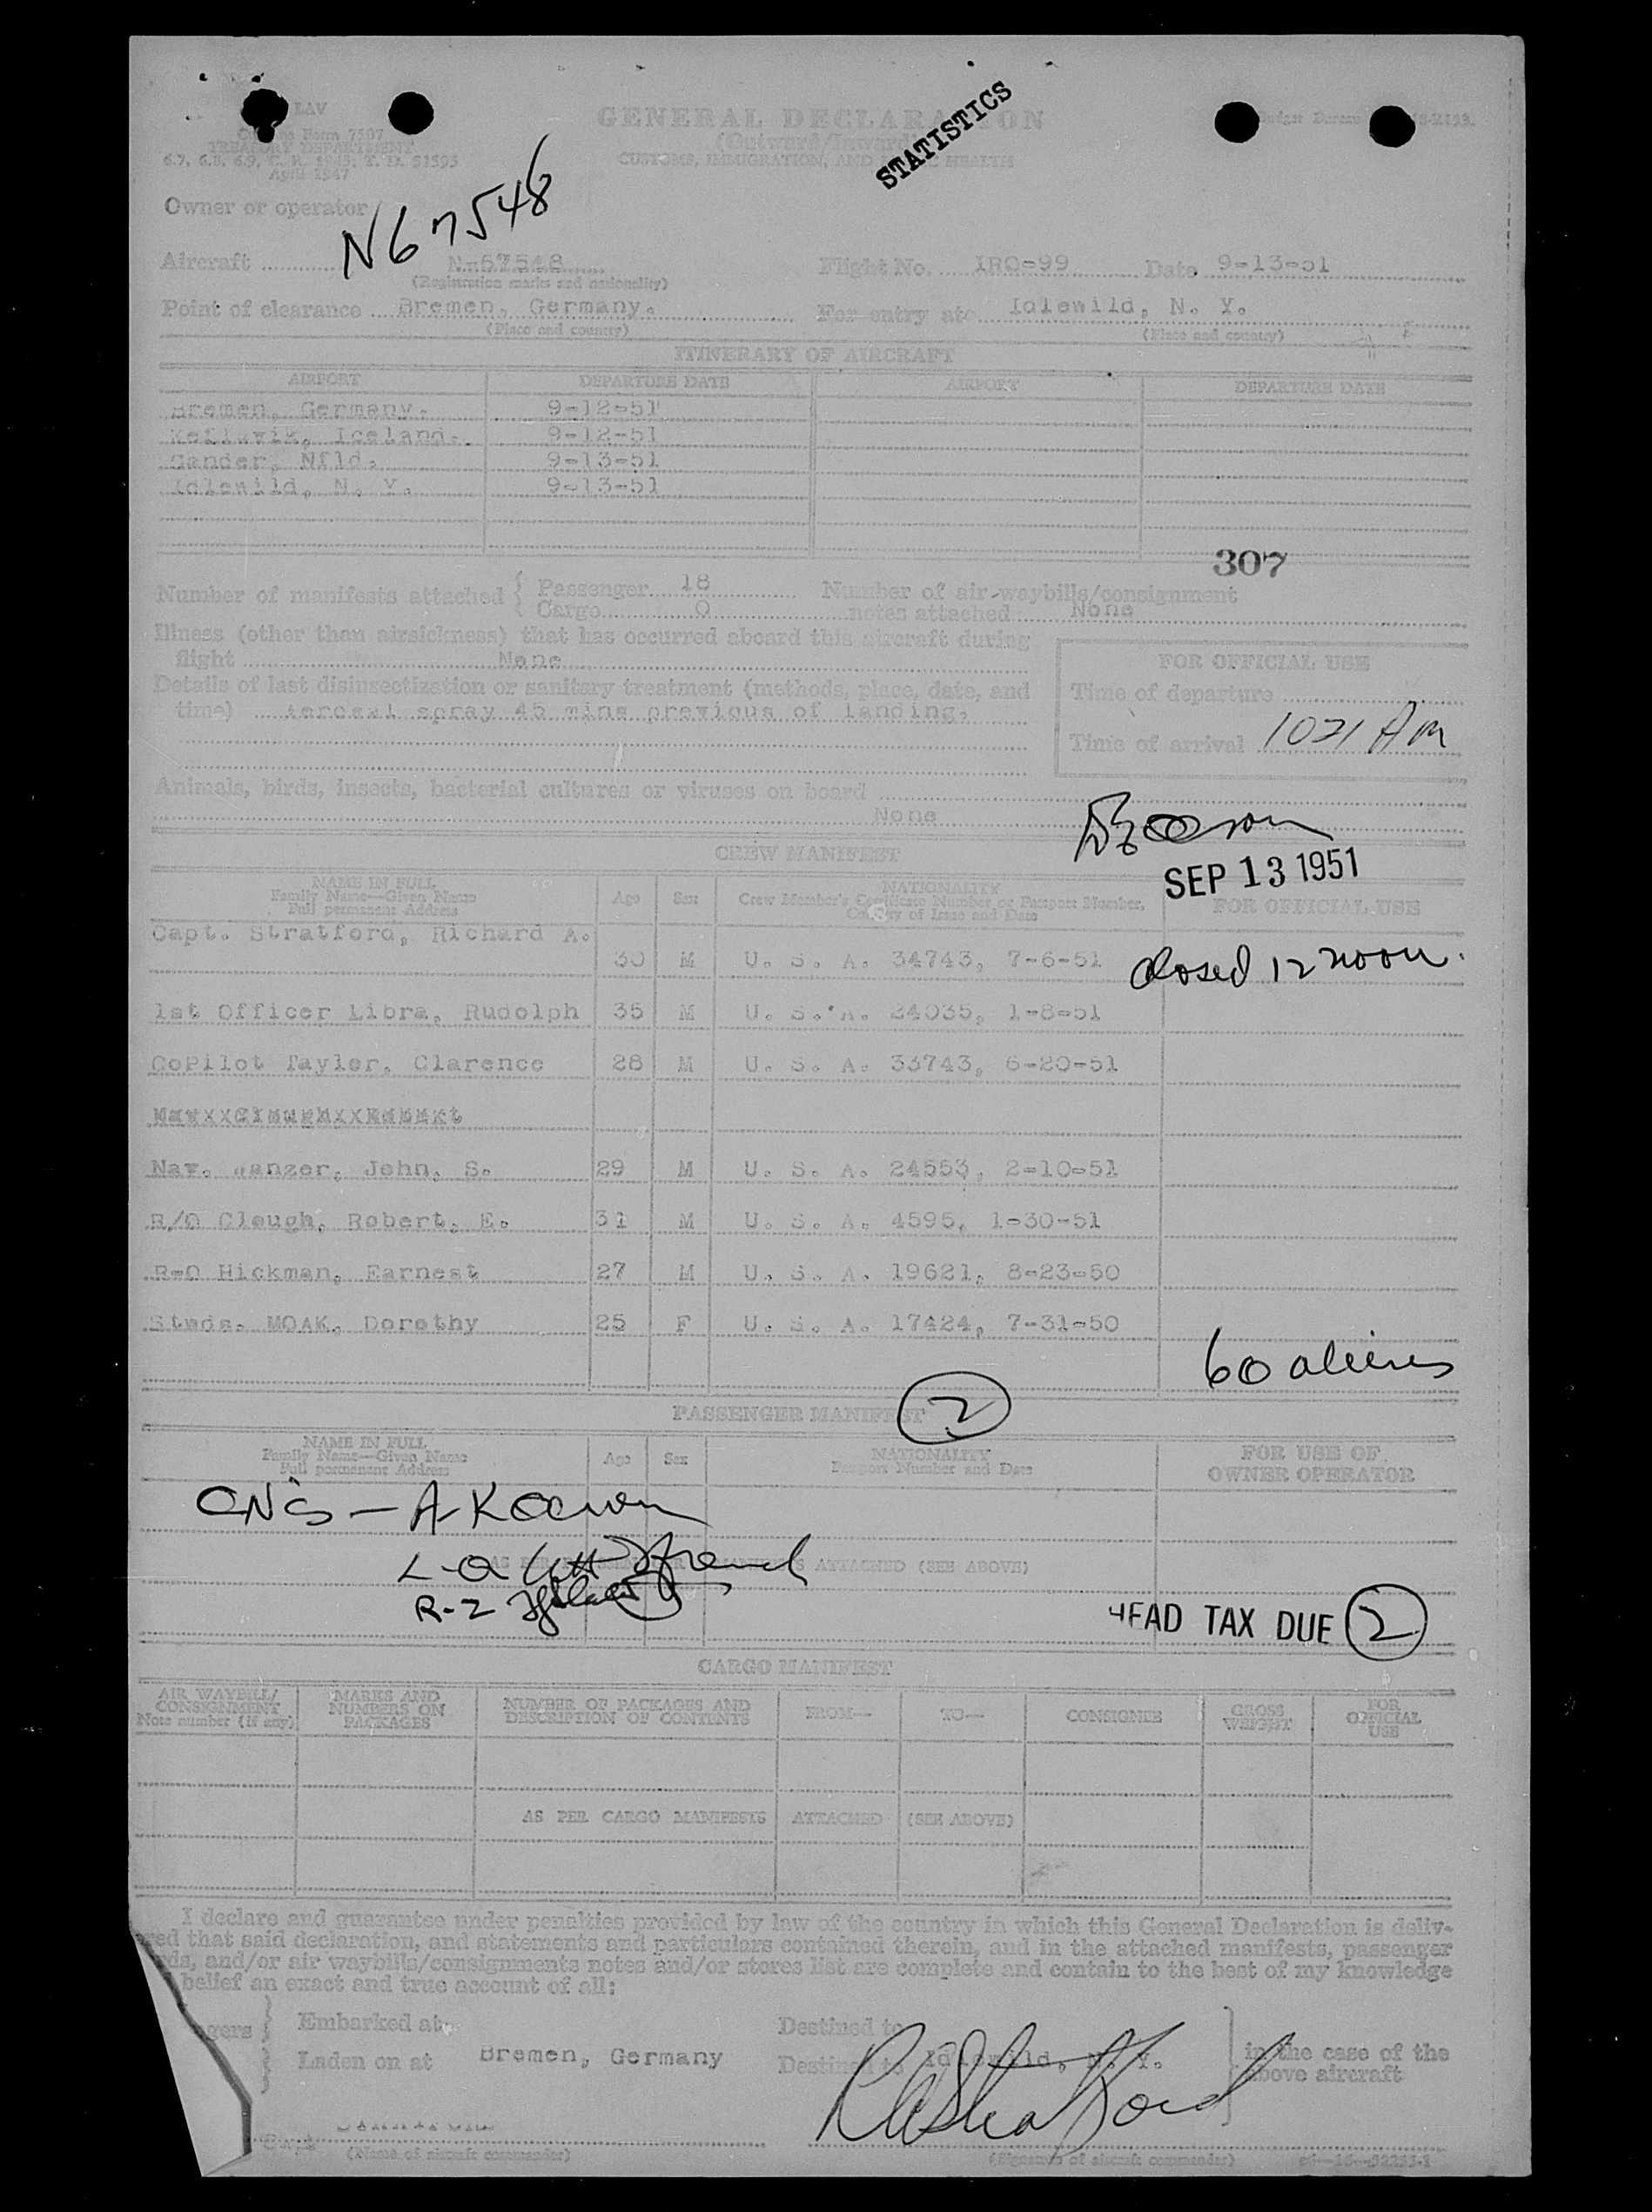 LAV
Customs Form 7507
TREASURY DEPARTMENT
April 1947
GENERAL DECLARATION
(Outward/Inward)
CUSTOMS, IMMIGRATION, AND PUBLIC HEALTH
STATISTICS
Owner or operator
N67548
Aircraft N-67548 Flight No. IRO-99 Date 9-13-51
(Registration marks and nationality)
Point of clearance Bremen, Germany. For entry at Idlewild, N. Y.
(Place and country) (Place and country)
ITINERARY OF AIRCRAFT
AIRPORT DEPARTURE DATE AIRPORT DEPARTURE DATE
Bremen, Germany. 9-12-51
Keflavik, Iceland. 9-12-51
Gander, Nfld. 9-13-51
Idlewild, N. Y. 9-13-51
307
Number of manifests attached { Passenger 18 Number of air-waybills/consignment
Cargo 0 notes attached: None
Illness (other than airsickness) that has occurred aboard this aircraft during
flight None
FOR OFFICIAL USE
Details of last disinsectization or sanitary treatment (methods, place, date, and
time) Aerosal spray 45 mins previous of landing.
Time of departure
Time of arrival 1021 AM
Animals, birds, insects, bacterial cultures or viruses on board
None
SEP 13 1951
CREW MANIFEST
NAME IN FULL
Family Name—Given Name
Full permanent Address
Age Sex NATIONALITY
Crew Member's Certificate Number or Passport Number,
Country of Issue and Date
FOR OFFICIAL USE
Closed 12 noon.
Capt. Stratford, Richard A.
30 M U. S. A. 34743, 7-6-51
1st Officer Libra, Rudolph 35 M U. S. A. 24035, 1-8-51
CoPilot Tayler, Clarence 28 M U. S. A. 33743, 6-20-51
Nav. John, S. 29 M U. S. A. 24553, 2-10-51
R/O Clough, Robert, E. 31 M U. S. A. 4595, 1-30-51
R-O Hickman, Earnest 27 M U. S. A. 19621, 8-23-50
Stwds. MOAK, Dorothy 25 F U. S. A. 17424, 7-31-50
60 aliens
PASSENGER MANIFEST 2
NAME IN FULL
Family Name—Given Name
Full permanent Address
Age Sex NATIONALITY
Passport Number and Date
FOR USE OF
OWNER OPERATOR
AS PER PASSENGER MANIFESTS ATTACHED (SEE ABOVE)
R-2
HEAD TAX DUE 2
CARGO MANIFEST
AIR WAYBILL/
CONSIGNMENT
Note number (if any)
MARKS AND
NUMBERS ON
PACKAGES
NUMBER OF PACKAGES AND
DESCRIPTION OF CONTENTS
FROM— TO— CONSIGNEE GROSS
WEIGHT
FOR
OFFICIAL
USE
AS PER CARGO MANIFESTS ATTACHED (SEE ABOVE)
I declare and guarantee under penalties provided by law of the country in which this General Declaration is deliv-
ered that said declaration, and statements and particulars contained therein, and in the attached manifests, passenger
ds, and/or air waybills/consignments notes and/or stores list are complete and contain to the best of my knowledge
belief an exact and true account of all:
ngers } Embarked at Destined to
Laden on at Bremen, Germany Destined to Idlewild, N. Y. } in the case of the
above aircraft
RA Stratford
(Name of aircraft commander) (Signature of aircraft commander)